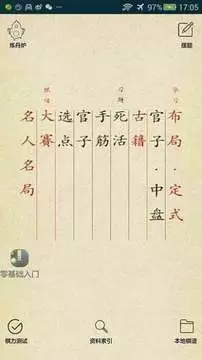 97%
17:05
炼丹炉
学习
布局·定式
官子·中盘
古籍
习题
死活
手筋
官子
选点
大赛
名人名局
零基础入门
棋力测试
资料索引
本地棋谱